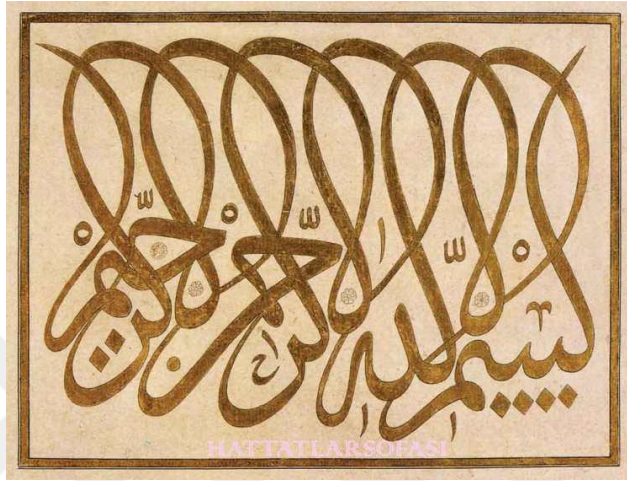 بسم الله الرحمن الرحيم
HATTATLARSOFASI